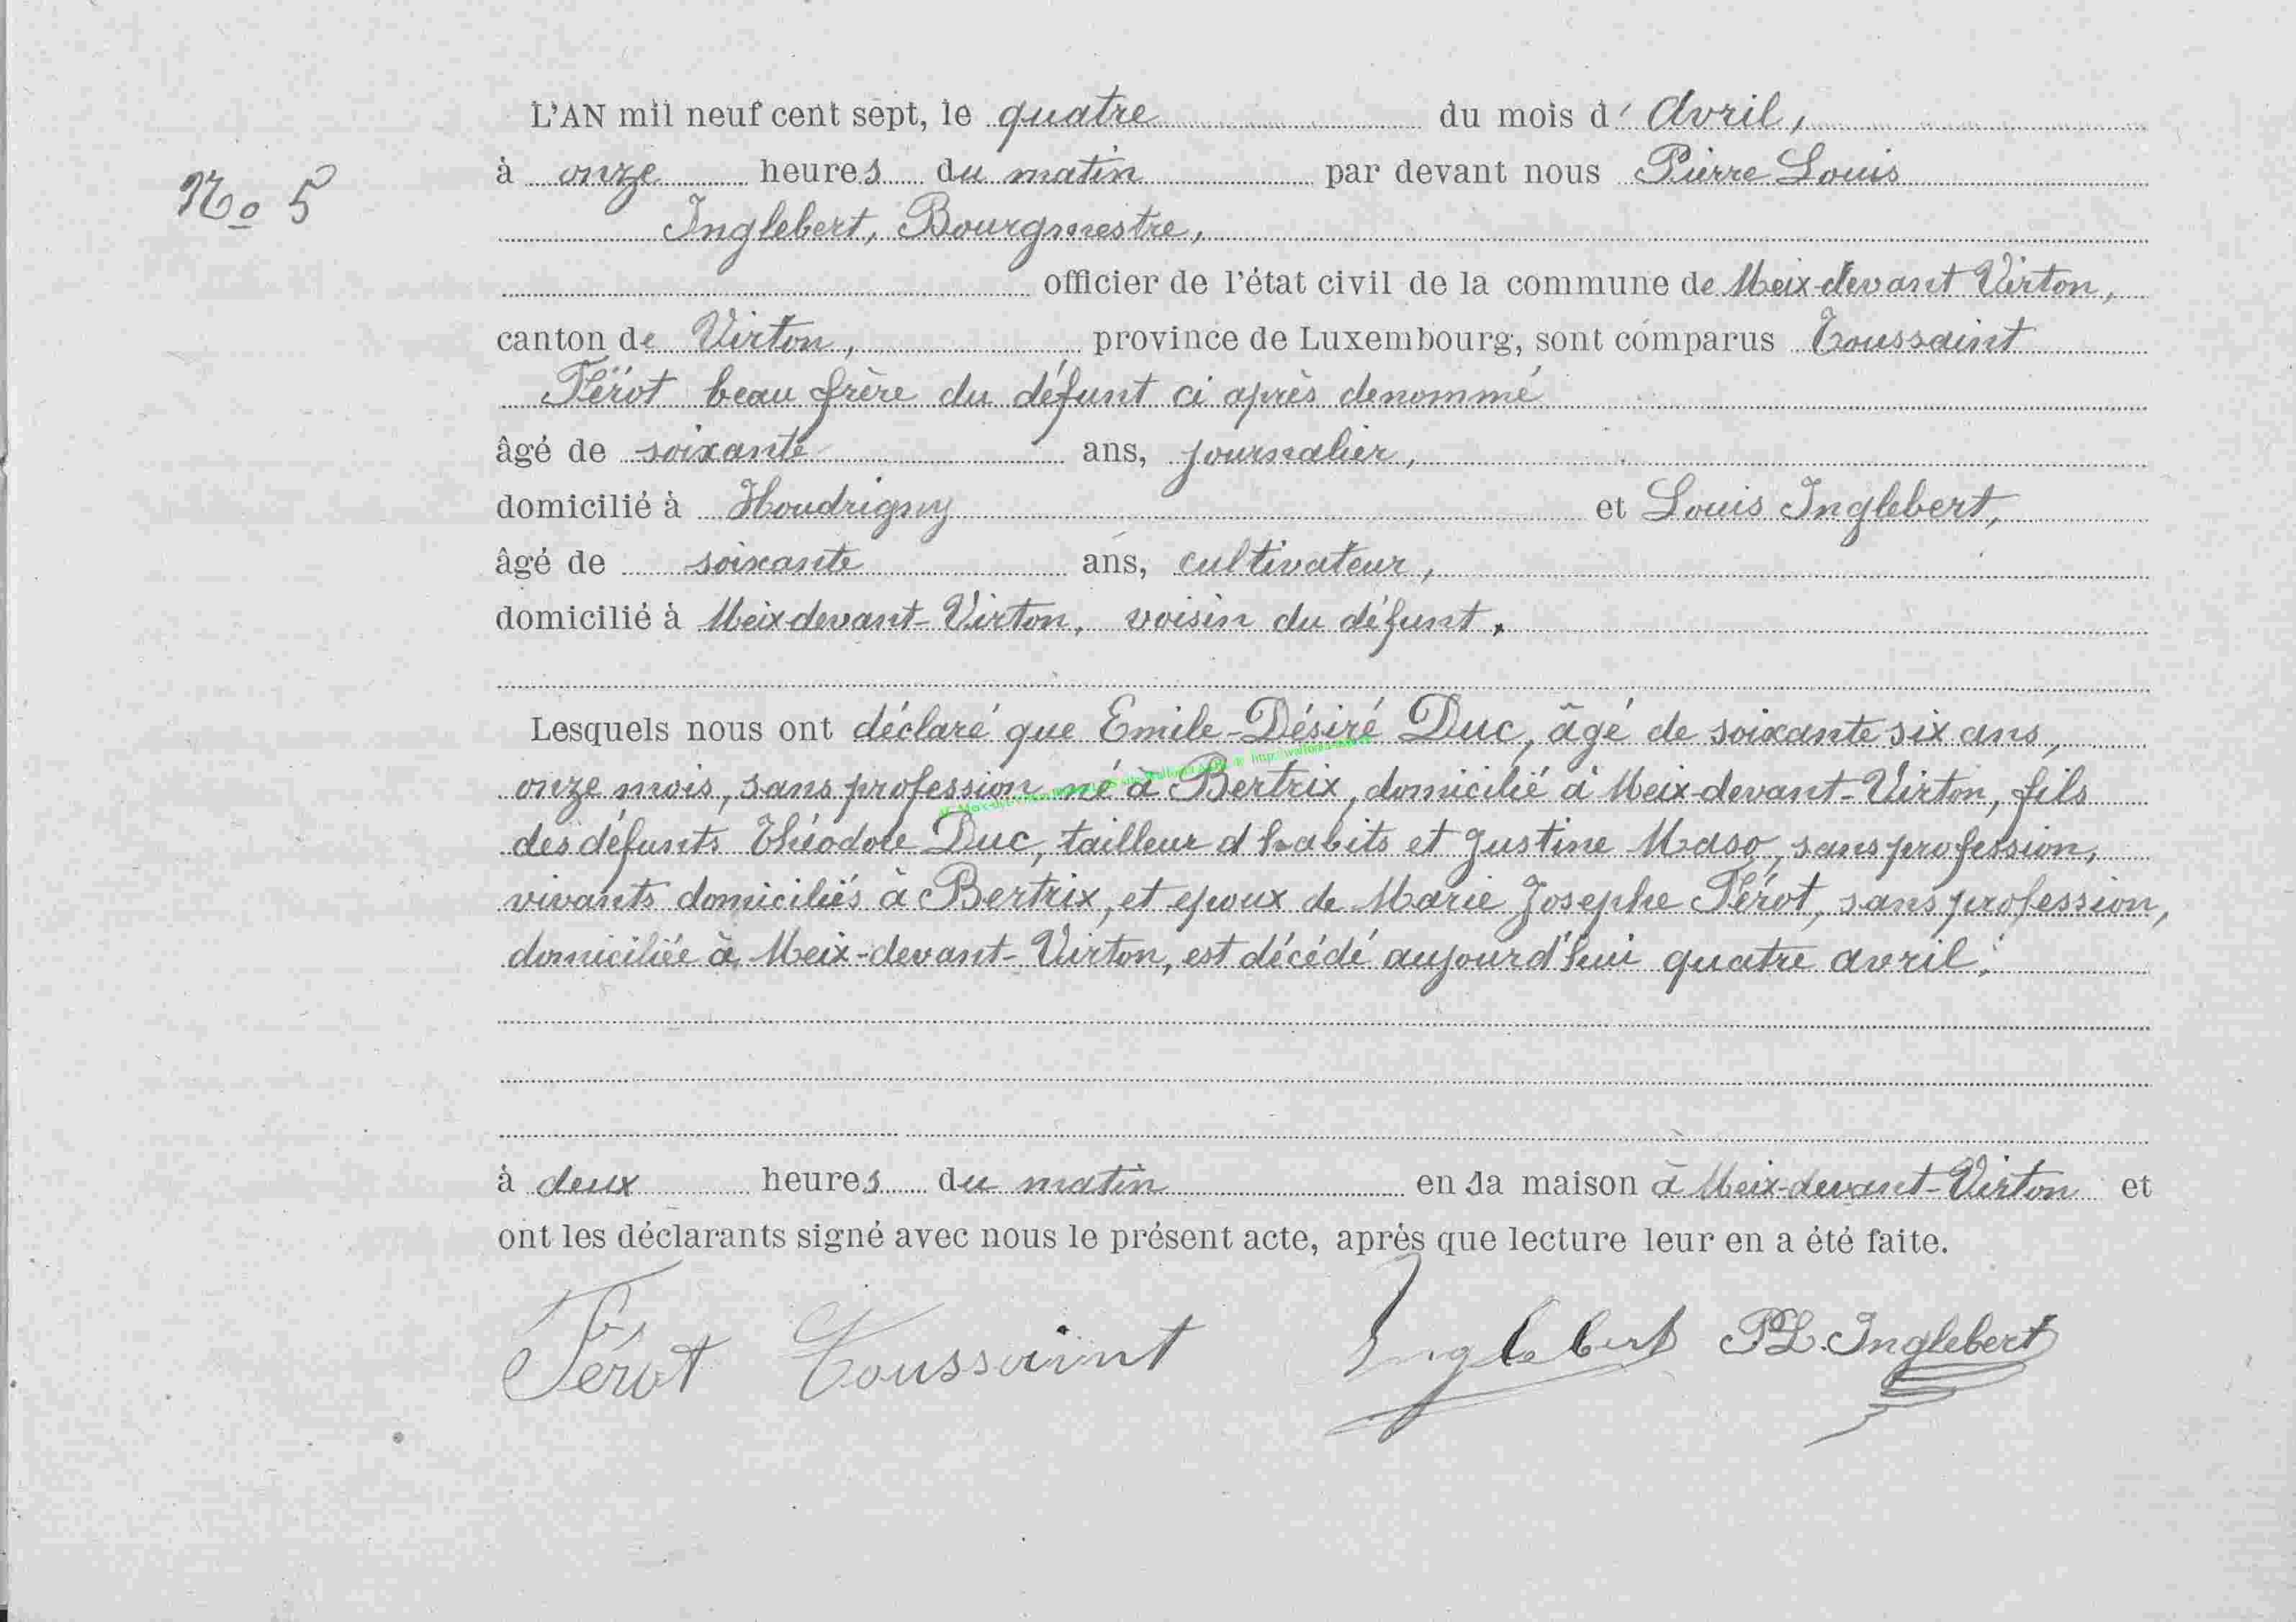 L'AN mil neuf cent sept, le quatre du mois d' Avril,
No 5
à onze heures du matin par devant nous Pierre Louis
Inglebert, Bourgmestre,
officier de l'état civil de la commune de Meix-devant Virton,
canton de Virton, province de Luxembourg, sont comparus Toussaint
Férot beau frère du défunt ci après denommé
âgé de soixante ans, journalier,
domicilié à Houdrigny et Louis Inglebert,
âgé de soixante ans, cultivateur,
domicilié à Meix-devant-Virton, voisin du défunt.
Lesquels nous ont déclaré que Emile-Désiré Duc, âgé de soixante six ans,
onze mois, sans profession né à Bertrix, domicilié à Meix-devant-Virton, fils
des défunts Théodore Duc, tailleur d'habits et Justine Maso, sans profession,
vivants domiciliés à Bertrix, et epoux de Marie Josephe Férot, sans profession,
domiciliée à Meix-devant-Virton, est décédé aujourd'hui quatre avril.
à deux heures du matin en sa maison à Meix-devant-Virton et
ont les déclarants signé avec nous le présent acte, après que lecture leur en a été faite.
Férot Toussaint Inglebert PL. Inglebert